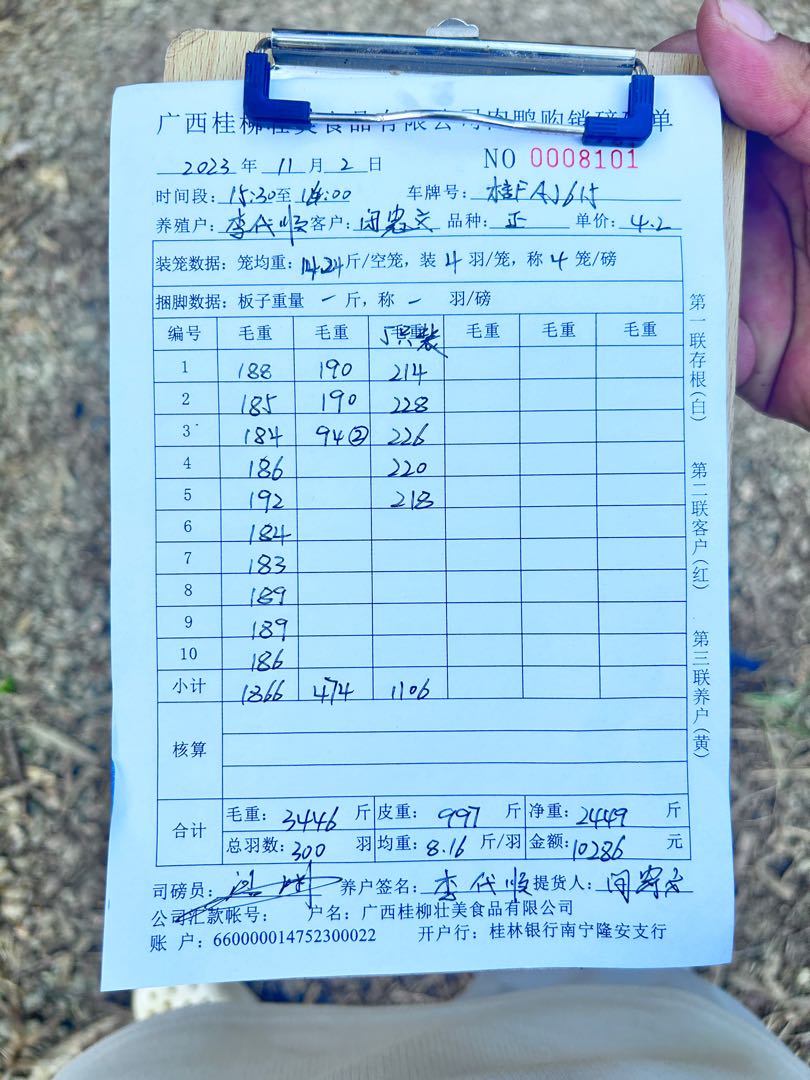 广西桂柳壮美食品有限公司肉鸭购销磅码单
2023 年 11 月 2 日 NO 0008101
时间段: 15:30至 :00 车牌号: 桂FAJ615
养殖户: 李代顺 客户: 闭 品种: 正 单价: 4.2
装笼数据: 笼均重: 14.24斤/空笼, 装 4 羽/笼, 称 4 笼/磅
捆脚数据: 板子重量 一 斤, 称 一 羽/磅
编号 毛重 毛重 5只装 毛重 毛重 毛重
1 188 190 214
2 185 190 228
3 184 94② 226
4 186 220
5 192 218
6 184
7 183
8 189
9 189
10 186
小计 1866 474 1106
核算
合计 毛重: 3446 斤 皮重: 997 斤 净重: 2449 斤
总羽数: 300 羽 均重: 8.16 斤/羽 金额: 10286 元
司磅员: 养户签名: 李代顺 提货人: 闭
公司汇款帐号: 户名: 广西桂柳壮美食品有限公司
账 户: 660000014752300022 开户行: 桂林银行南宁隆安支行
第一联存根(白) 第二联客户(红) 第三联养户(黄)